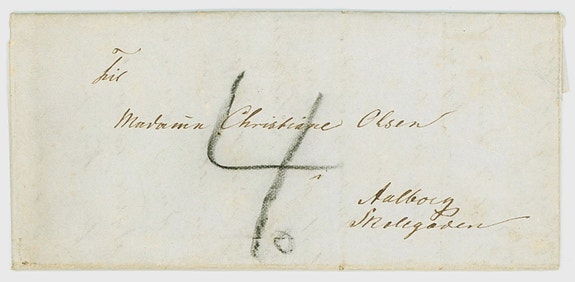 Til
Madame Christiane Olsen
4
i
Aalborg
Skolegaden